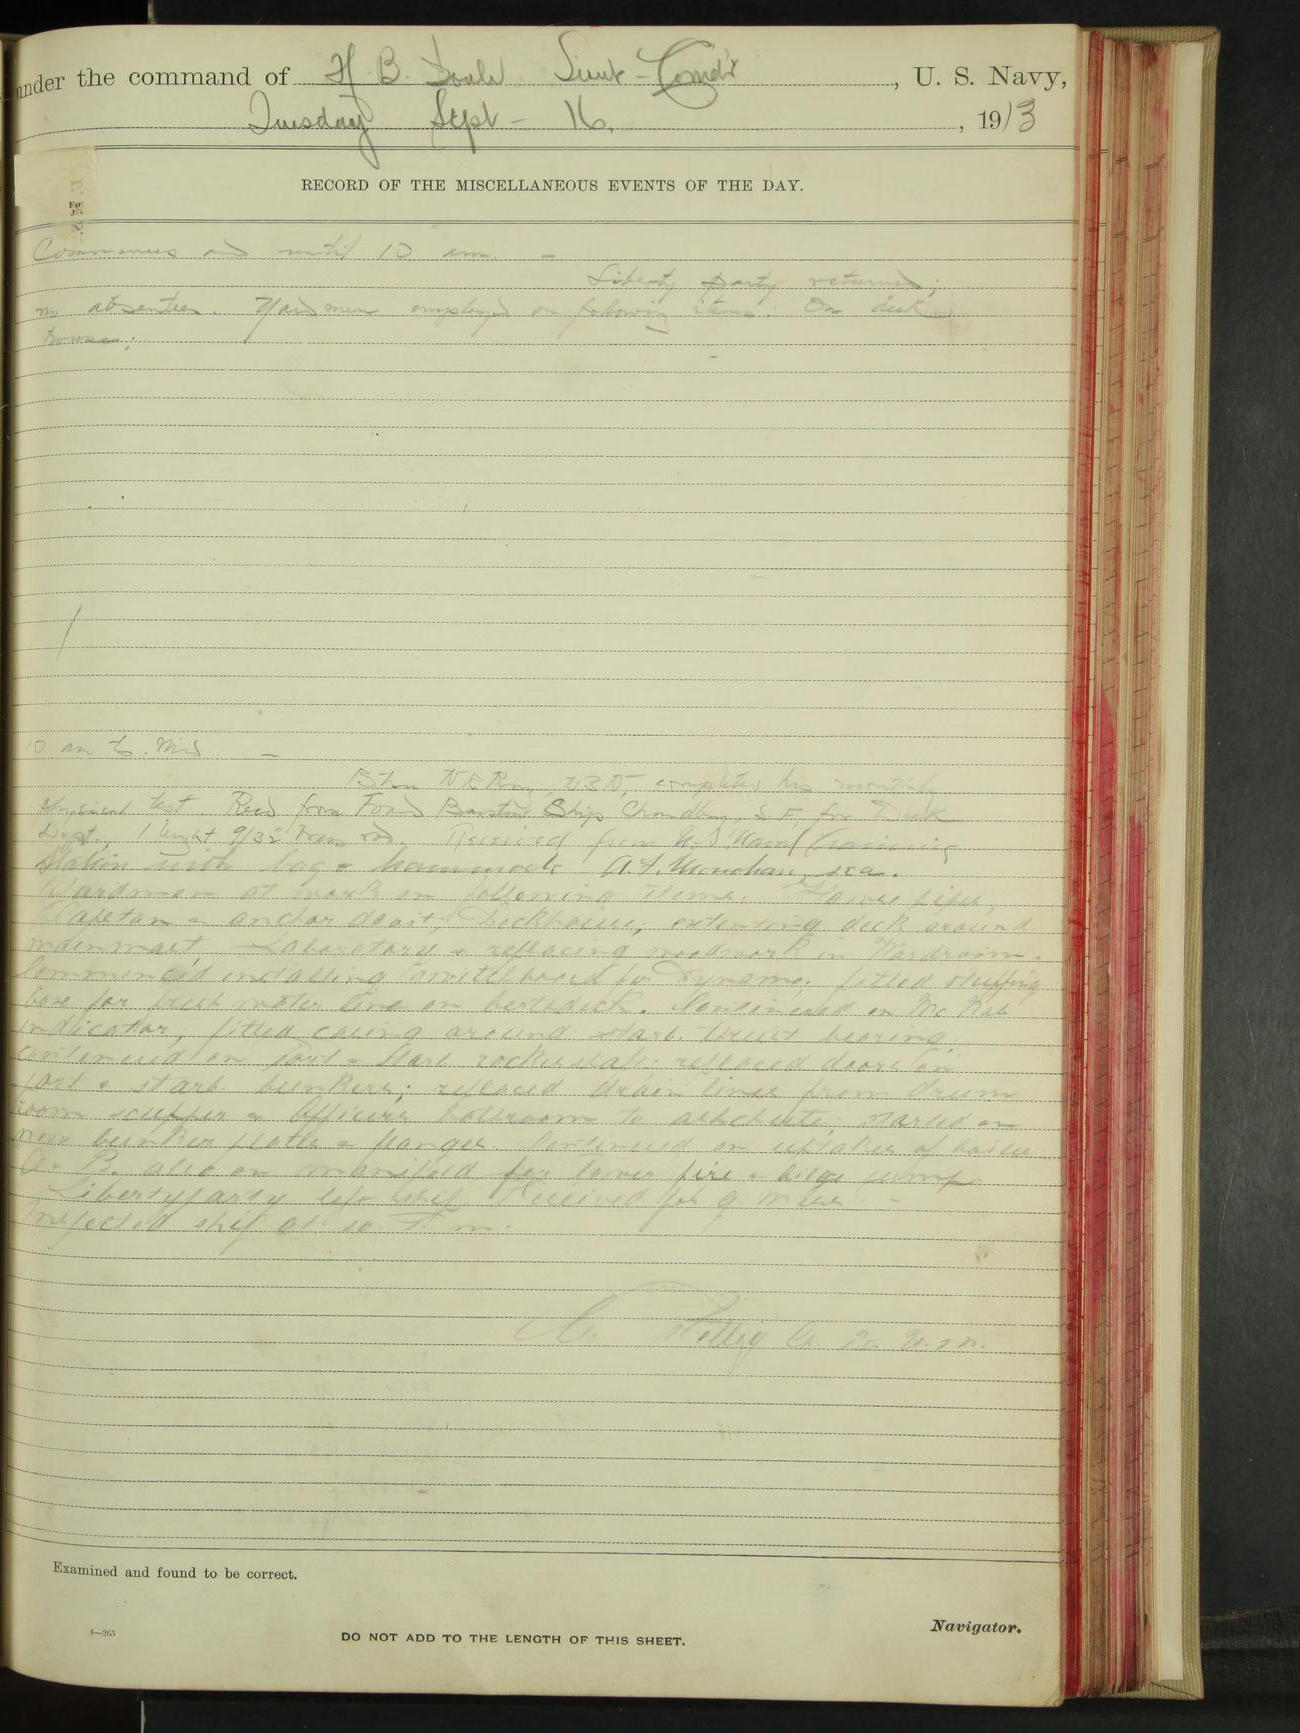 under the command of H. B. Soulé Lieut-Comdr, U. S. Navy,
Tuesday Sept - 16, 1913
RECORD OF THE MISCELLANEOUS EVENTS OF THE DAY.
Commences and until 10 am. -
Liberty party returned;
no absentees. Yard men employed on following items: On deck
house;
10 am to Mid -
completed his monthly
physical test. Recd from Ford Barstow Ship Chandlery, S. F., for Deck
Dept., 1 lenght 9/32" brass rod. Received from U.S. Naval Training
Station with bag & hammock A. F. sea.
Yardmen at work on following items. Hawse pipes,
Capstan & anchor davit, Deckhouse, extending deck around
mainmast, Laboratory & replacing woodwork in Wardroom.
Commenced installing switchboard for Dynamo, fitted stuffing
box for fresh water line on berthdeck. Continued on Mc Nab
indicator, fitted casing around starb. thrust bearing,
continued on port & starb rockershaft; replaced doors on
port & starb. bunkers; replaced drain lines from drum
room scupper & Officers bathroom to ashchute, started on
new bunker plates & flanges. Continued on uptakes of boiler
A & B. also on manifold for tower fire & bilge pump.
Liberty party left ship. Received for g. mess -
Inspected ship at 10 P. m.
U.S.N.
Examined and found to be correct.
Navigator.
A—265
DO NOT ADD TO THE LENGTH OF THIS SHEET.